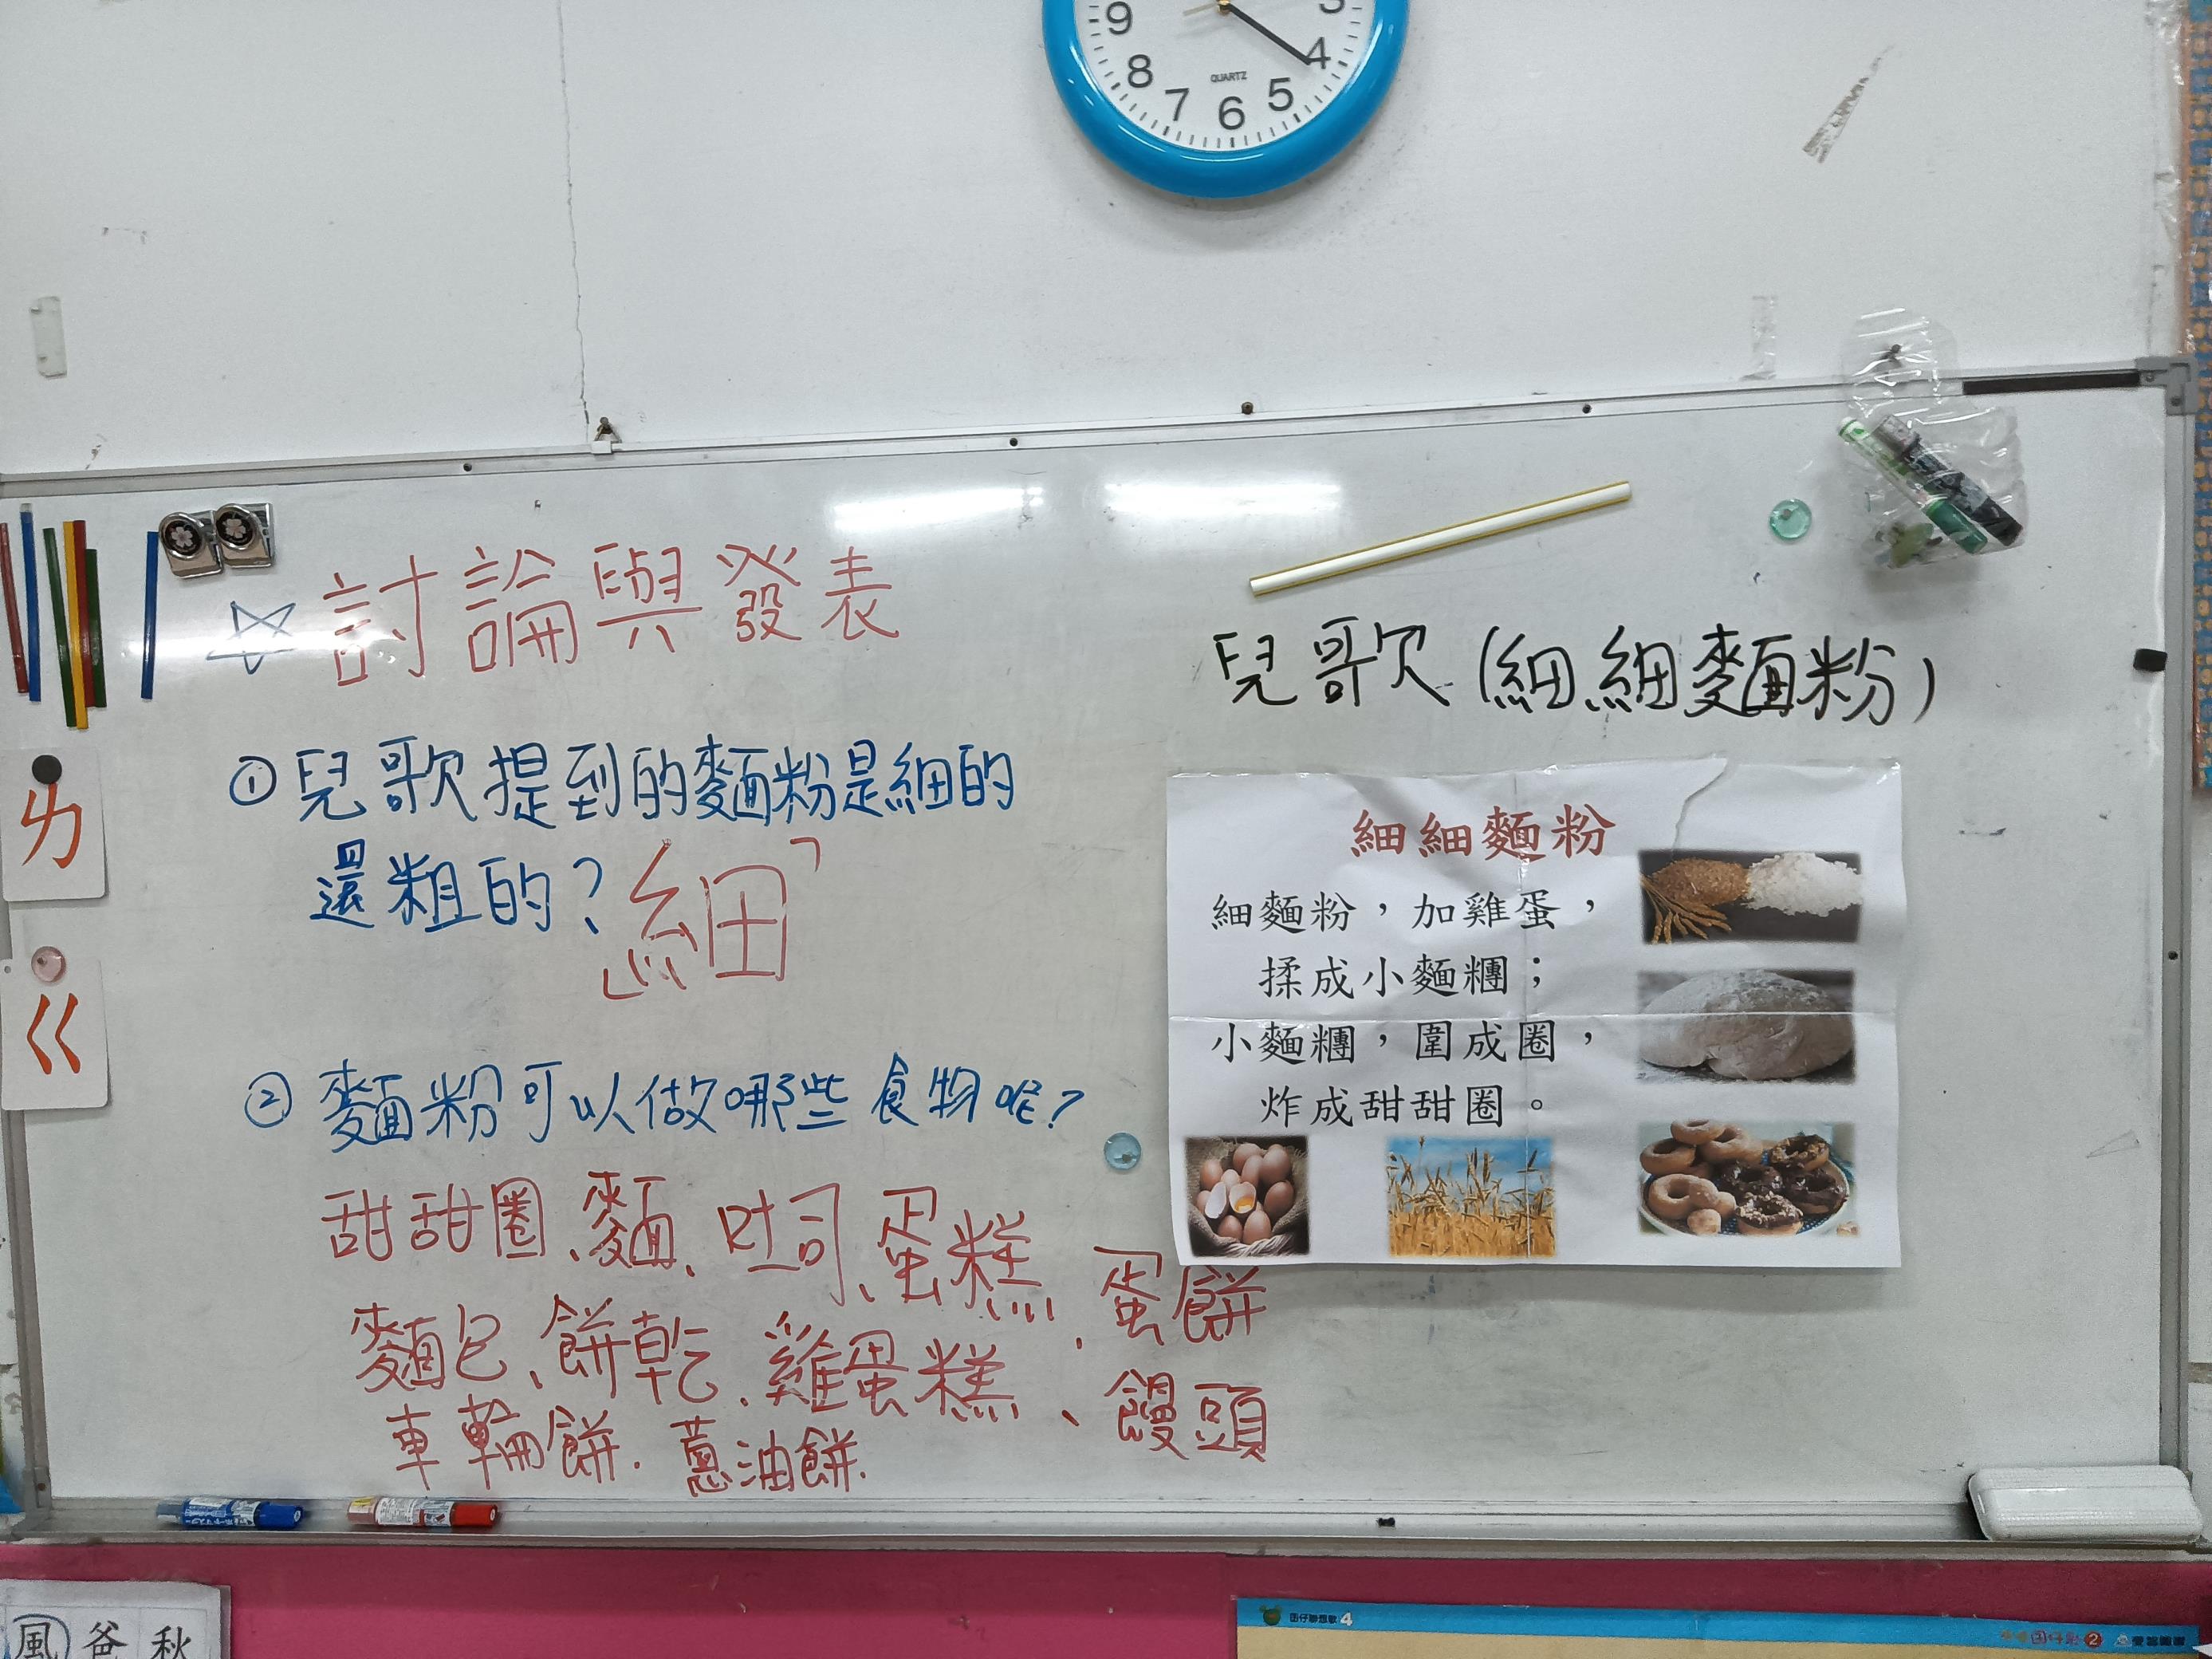 9
8
7
6
5
4
3
QUARTZ
討論與發表
①兒歌提到的麵粉是細的
還粗的?細
②麵粉可以做哪些食物呢?
甜甜圈、麵、吐司、蛋糕、蛋餅
麵包、餅乾、雞蛋糕、饅頭
車輪餅、蔥油餅、
兒歌(細細麵粉)
細細麵粉
細麵粉,加雞蛋,
揉成小麵糰;
小麵糰,圍成圈,
炸成甜甜圈。
ㄌ
ㄍ
風爸秋